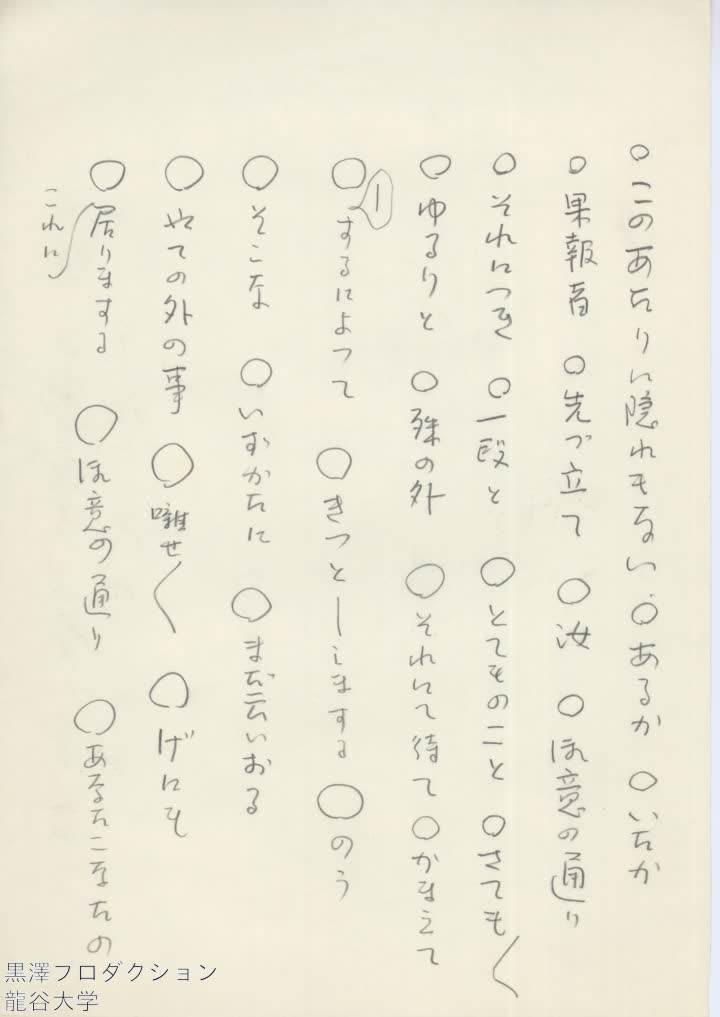 ○このあたりに隠れもない ○あるか ○いたか
○果報者 ○先づ立て ○汝 ○ほ意の通り
○それにつき ○一段と ○とてものこと ○さても〱
○ゆるりと ○殊の外 ○それにて待て ○かまえて
○するによつて ○きつと ○のう
○そこな ○いずかたに ○まだ云いおる
○やての外の事 ○囃せ〱 ○げにも
○これに居りまする ○ほ意の通り ○あなたこなたの
黒澤プロダクション
龍谷大学